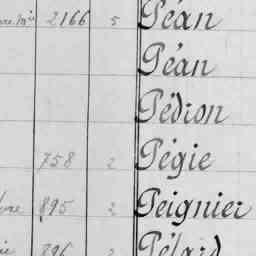 2166 5 Péan
Péan
Pédron
758 2 Pégie
895 2 Peignier
796 2 Pélard